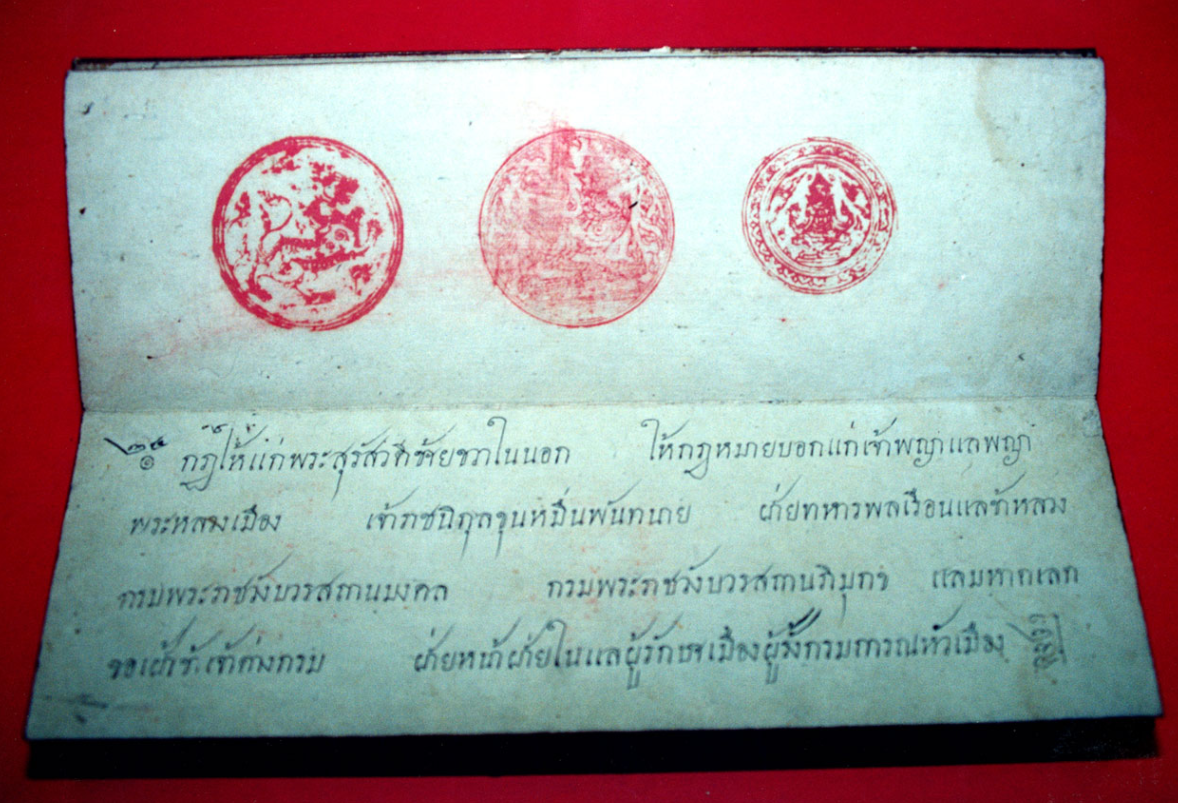 ๑ กฎให้แก่พระสุรัสวดีซ้ายขวาในนอก ให้กฎหมายบอกแก่เจ้าพญาแลพญา
พระหลวงเมือง เจ้าราชนิกุลขุนหมื่นพันทนาย ฝ่ายทหารพลเรือนแลข้าหลวง
กรมพระราชวังบวรสถานมงคล กรมพระราชวังบวรสถานภิมุกข แลมหาดเลก
ขอเฝ้าข้าเจ้าต่างกรม ฝ่ายหน้าฝ่ายในแลผู้รักษาเมืองผู้รั้งกรมการณหัวเมือง